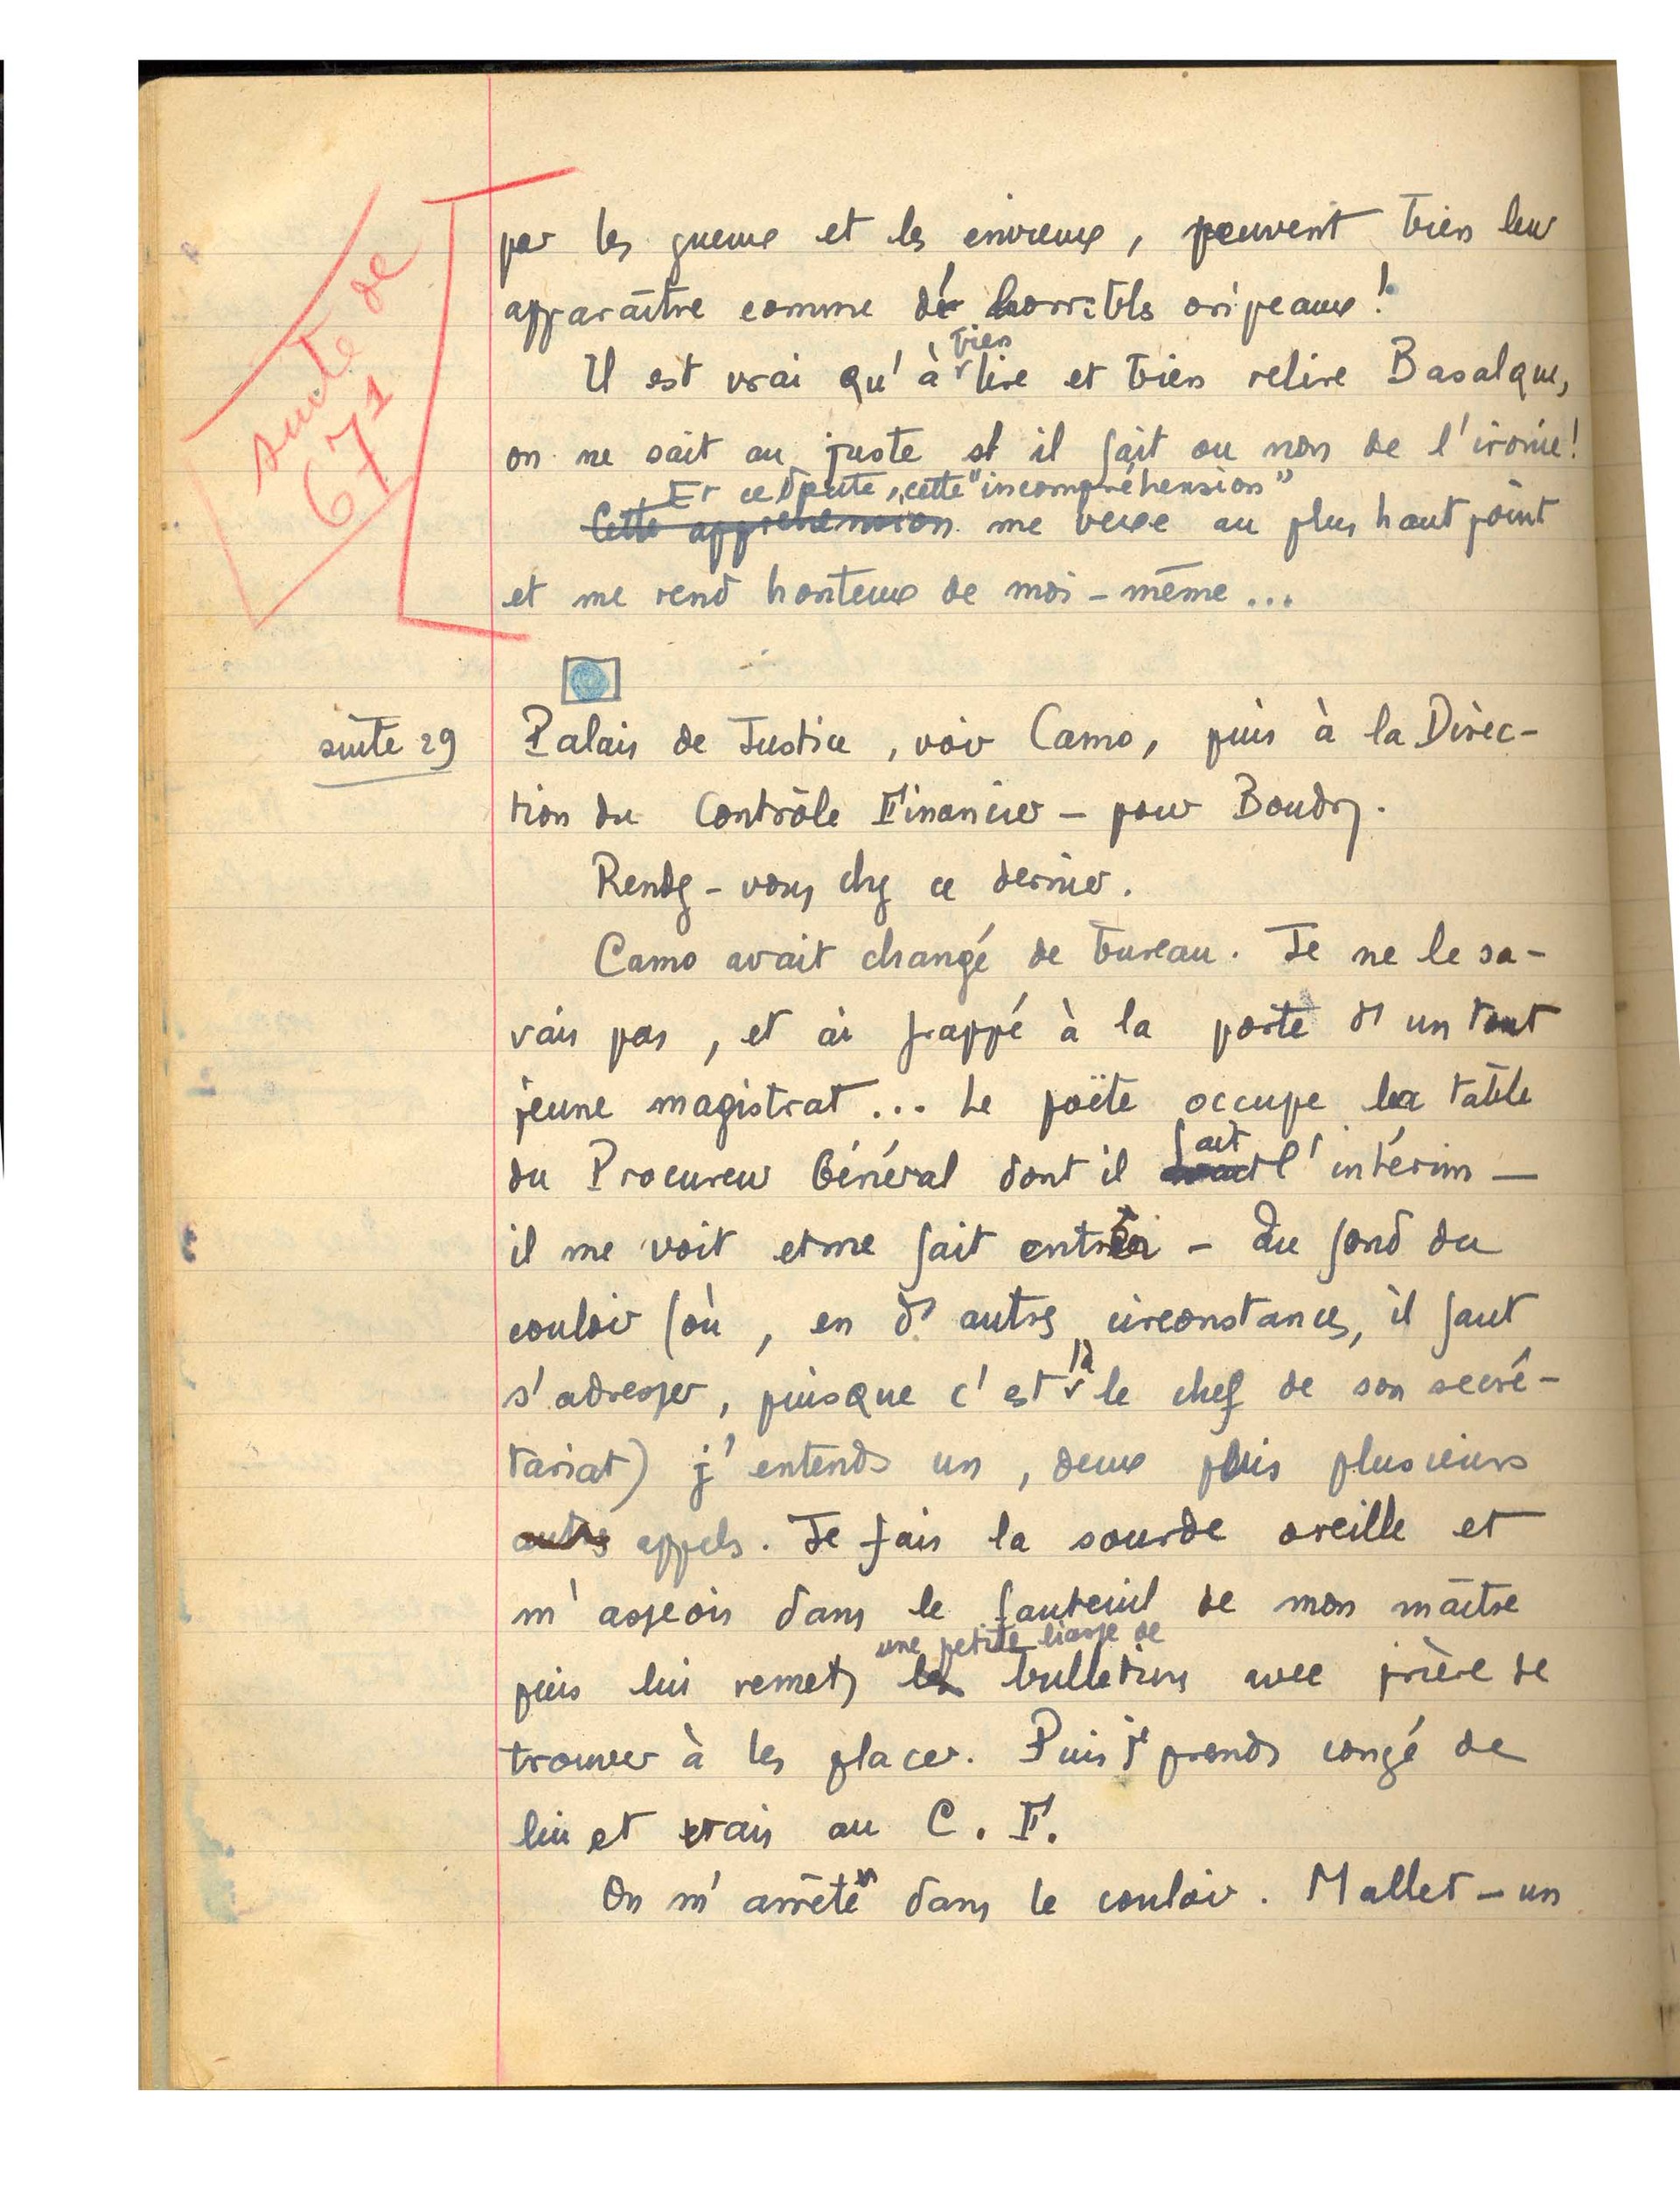 suite de
67¹
par les gueux et les envieux, peuvent bien leur
apparaître comme d' horribles oripeaux !
Il est vrai qu'à bien lire et bien relire Basalque,
on ne sait au juste s'il fait ou non de l'ironie !
Et ce doute, cette "incompréhension"
Cette appréhension me vexe au plus haut point
et me rend honteux de moi-même...
suite 29
Palais de Justice, voir Camo, puis à la Direc-
tion du Contrôle Financier - pour Boudry.
Rendez-vous chez ce dernier.
Camo avait changé de bureau. Je ne le sa-
vais pas, et ai frappé à la porte d'un tout
jeune magistrat... Le poëte occupe la table
du Procureur Général dont il fait l'intérim -
il me voit et me fait entrer - Du fond du
couloir (où, en d'autres circonstances, il faut
s'adresser, puisque c'est là le chef de son secré-
tariat) j'entends un, deux puis plusieurs
autres appels. Je fais la sourde oreille et
m'asseois dans le fauteuil de mon maître
une petite liasse de
puis lui remets les bulletins avec prière de
trouver à les placer. Puis je prends congé de
lui et vais au C. F.
On m'arrête dans le couloir. Mallet - un